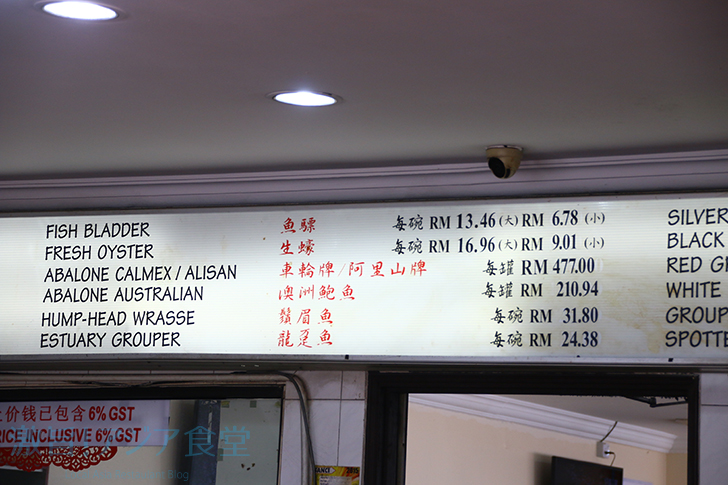 FISH BLADDER 魚鰾 每碗 RM 13.46 (大) RM 6.78 (小) SILVER
FRESH OYSTER 生蠔 每碗 RM 16.96 (大) RM 9.01 (小) BLACK
ABALONE CALMEX / ALISAN 車輪牌/阿里山牌 每罐 RM 477.00 RED
ABALONE AUSTRALIAN 澳洲鮑魚 每罐 RM 210.94 WHITE
HUMP-HEAD WRASSE 鬚眉魚 每碗 RM 31.80 GROUP
ESTUARY GROUPER 龍躉魚 每碗 RM 24.38 SPOTTE
价钱已包含 6% GST
RICE INCLUSIVE 6% GST
食堂
Blog